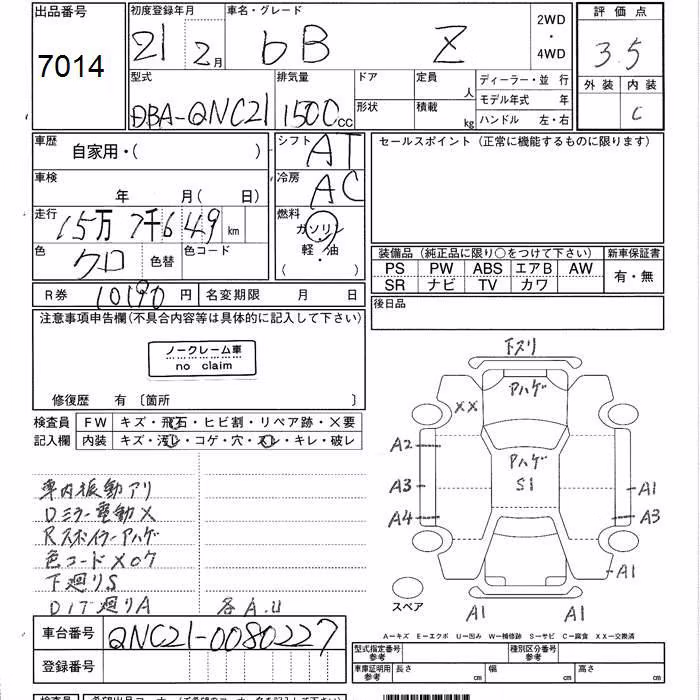 出品番号
7014
初度登録年月
21 2月
車名・グレード
bB Z
2WD
・
4WD
評価点
3.5
外装 内装
C
型式
DBA-QNC21
排気量
1500cc
ドア
形状
定員
人
積載
kg
ディーラー・並 行
モデル年式 年
ハンドル 左・右
車歴
自家用・( )
車検
年 月( 日)
走行
15万7千649km
色
クロ
色替
色コード
シフト
AT
冷房
AC
燃料
ガソリン
軽・油
( )
セールスポイント (正常に機能するものに限ります)
装備品 (純正品に限り○をつけて下さい)
PS PW ABS エアB AW
SR ナビ TV カワ
新車保証書
有・無
R券 10190円
名変期限 月 日
後日品
注意事項申告欄(不具合内容等は具体的に記入して下さい)
ノークレーム車
no claim
修復歴 有 〔箇所 〕
検査員
記入欄
FW キズ・飛石・ヒビ割・リペア跡・×要
内装 キズ・汚レ・コゲ・穴・スレ・キレ・破レ
車内振動アリ
Dミラー電動×
Rスポイラーアハゲ
色コードX07
下廻りS
各A.U
下スリ
アハゲ
XX
アハゲ
S1
A2
A3
A4
A1
A3
A1
A1
A1
スペア
A−キズ E−エクボ U−凹み W−補修跡 S−サビ C−腐食 XX−交換済
車台番号
QNC21-0080227
登録番号
型式指定番号
参考
種別区分番号
参考
車庫証明用
参考
長さ
幅
高さ